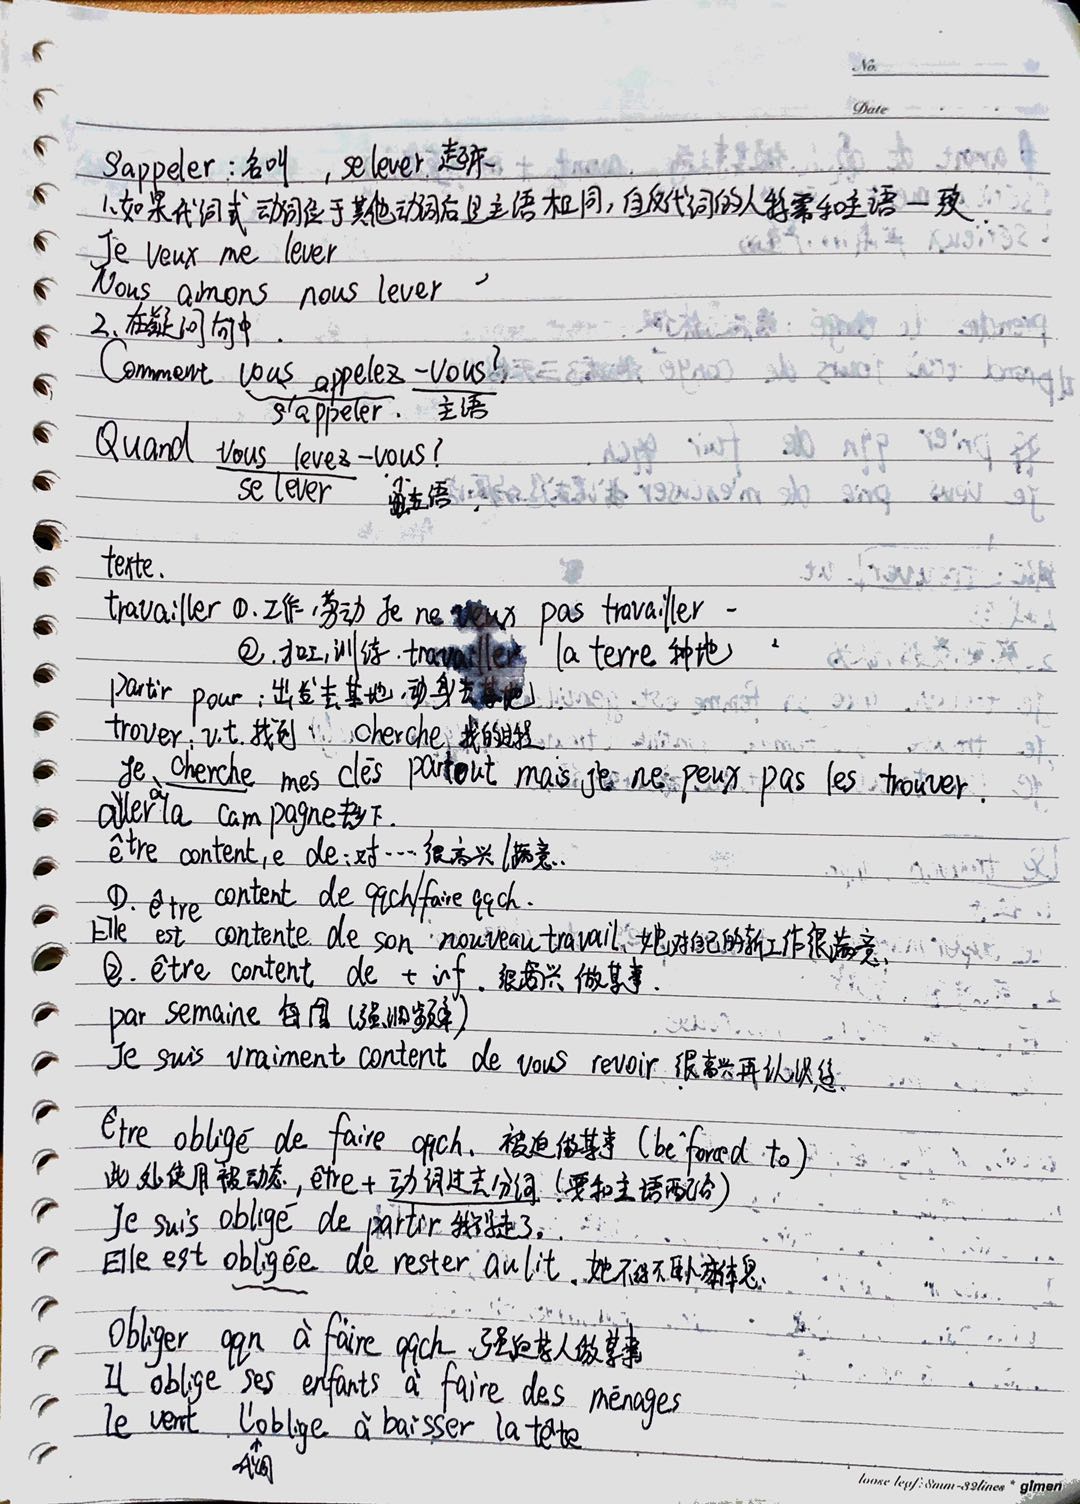 No.
Date
s'appeler：名叫 , se lever 起床
1.如果代词式动词位于其他动词后且主语相同，自反代词的人称需和主语一致
Je veux me lever
Nous aimons nous lever
2、在疑问句中.
Comment vous appelez-vous?
s'appeler. 主语
Quand vous levez-vous?
se lever 主语
texte.
travailler ①.工作,劳动 Je ne veux pas travailler
②.加工,训练. travailler la terre 种地
partir pour：出发去某地,动身去某地
trover. v.t. 找到 cherche 找的过程
Je cherche mes clés partout mais je ne peux pas les trouver.
aller à la campagne 去乡下.
être content,e de：对…很高兴/满意.
①. être content de qqch/faire qqch.
Elle est contente de son nouveau travail. 她对自己的新工作很满意.
②. être content de + inf. 很高兴做某事.
par semaine 每周 (强调频率)
Je suis vraiment content de vous revoir 很高兴再认识您.
Être obligé de faire qqch. 被迫做某事 (be forced to)
此处使用被动态, être + 动词过去分词 (要和主语配合)
Je suis obligé de partir 我得走了.
Elle est obligée de rester au lit. 她不得不卧床休息.
Obliger qqn à faire qqch 强迫某人做某事
Il oblige ses enfants à faire des ménages
le vent l'oblige à baisser la tête
代词
loose leaf:8mm-32lines * glmen